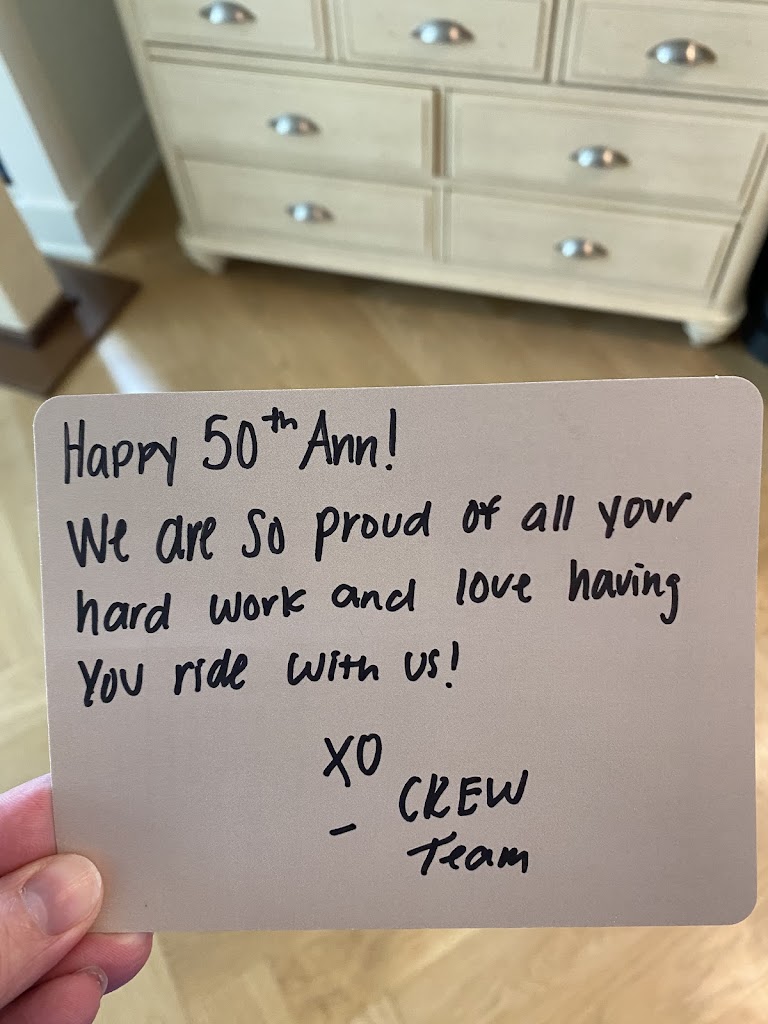 Happy 50th Ann!
We are so proud of all your
hard work and love having
you ride with us!
XO
- CREW
Team